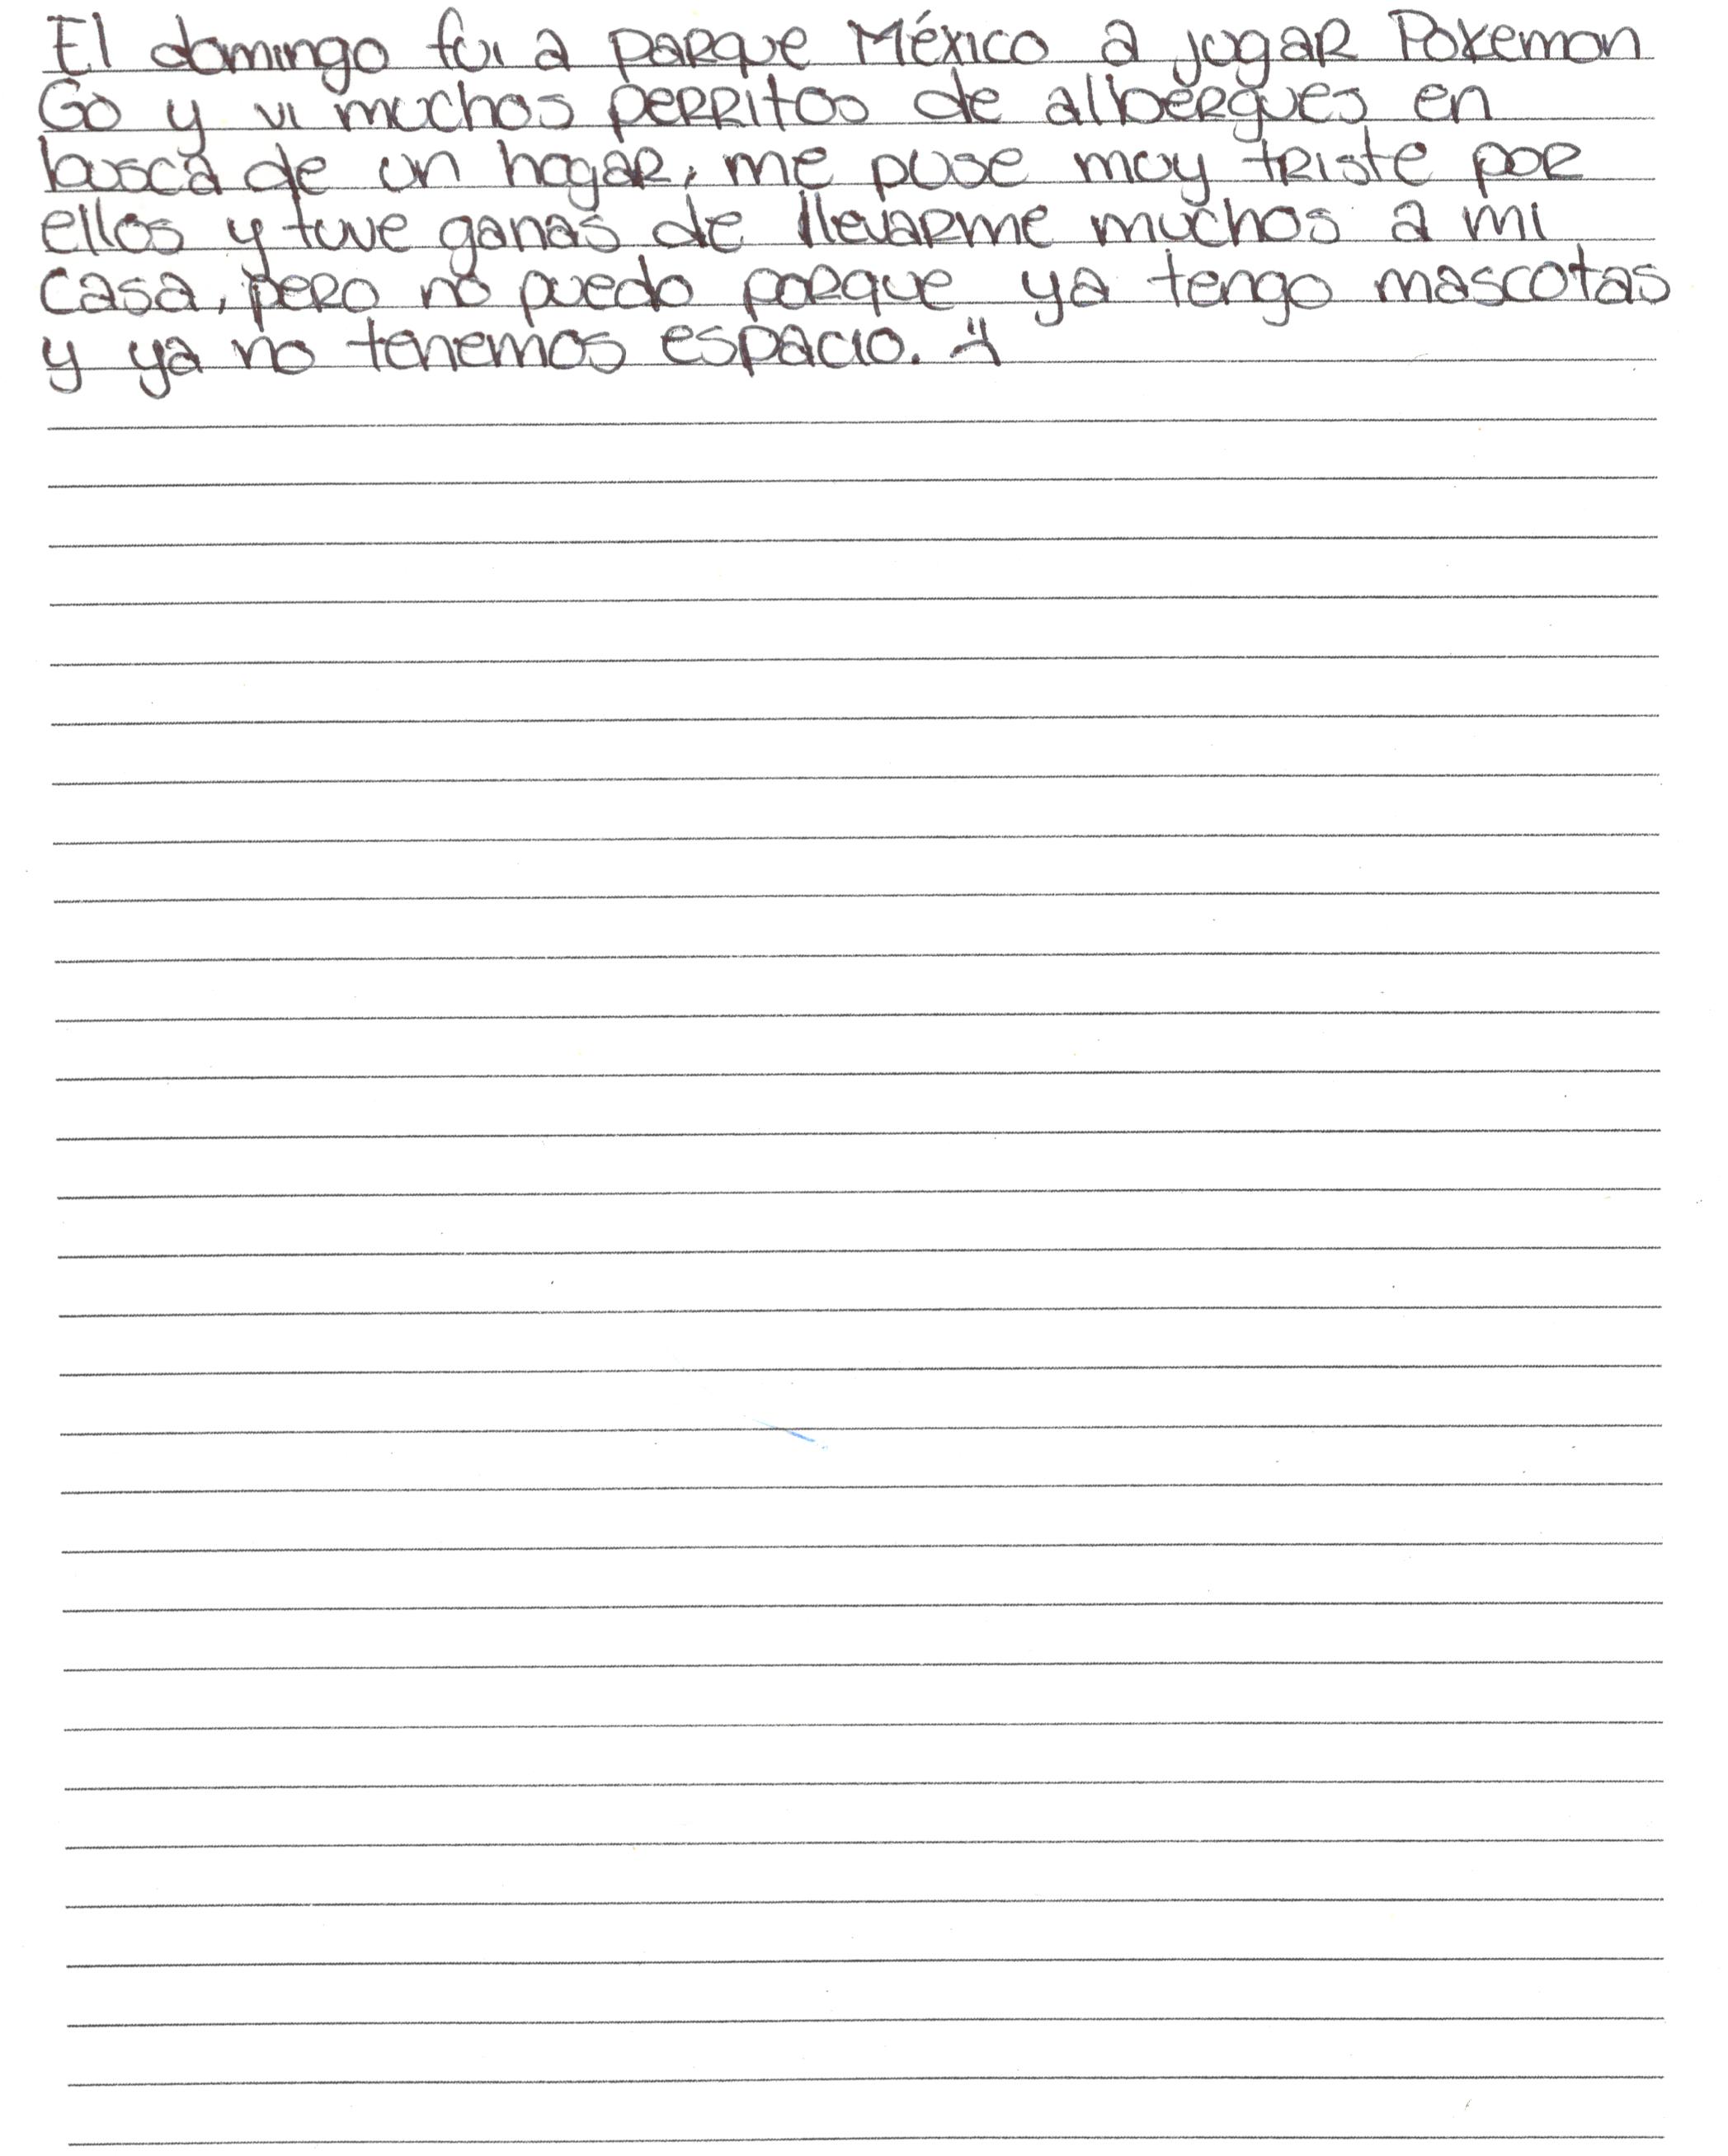 El domingo fui a parque México a jugar Pokemon
Go y vi muchos perritos de albergues en
busca de un hogar, me puse muy triste por
ellos y tuve ganas de llevarme muchos a mi
casa, pero no puedo porque ya tengo mascotas
y ya no tenemos espacio. :(